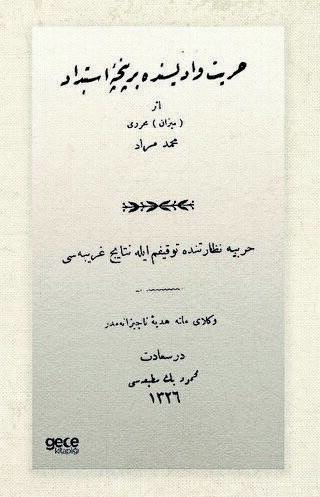 حریت وادیسنده بر پنجۀ استبداد
اثر
( میزان ) محرری
محمد مراد
حربیه نظارتنده توقیفم ایله نتایج غریبه‌سی
وکلای ملته هدیۀ ناچیزانه‌مدر
درسعادت
محمود بك مطبعه‌سی
١٣٢٦
gece
kitaplığı